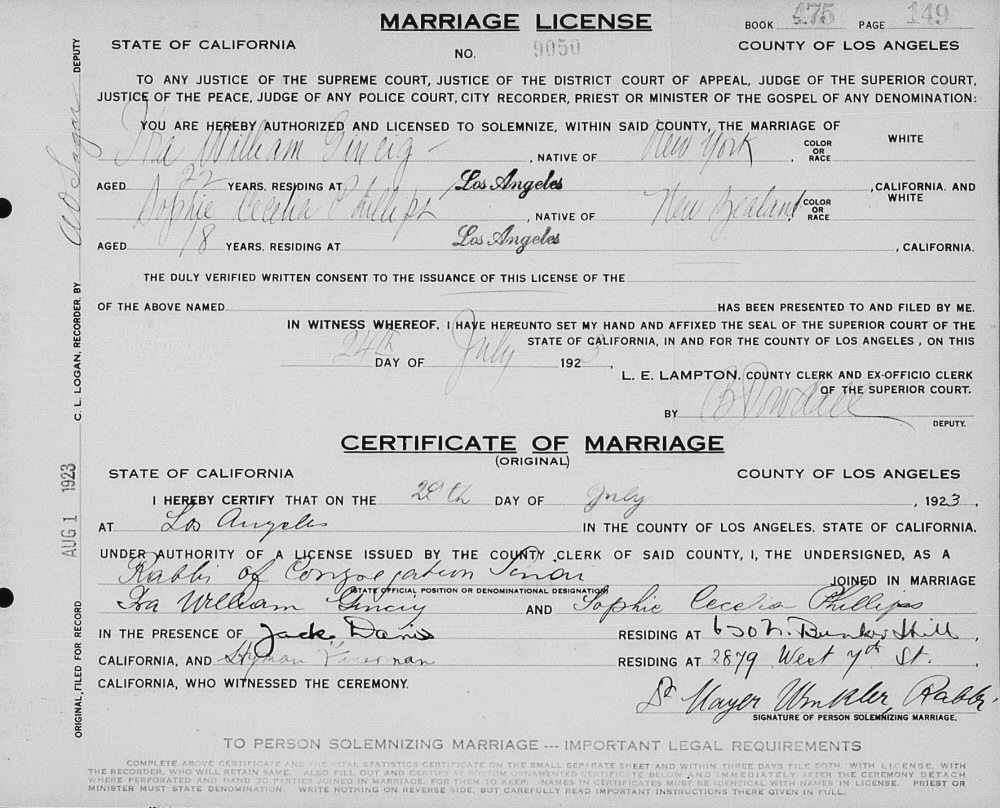 MARRIAGE LICENSE
BOOK 475 PAGE 149
STATE OF CALIFORNIA
NO. 9050
COUNTY OF LOS ANGELES
TO ANY JUSTICE OF THE SUPREME COURT, JUSTICE OF THE DISTRICT COURT OF APPEAL, JUDGE OF THE SUPERIOR COURT,
JUSTICE OF THE PEACE, JUDGE OF ANY POLICE COURT, CITY RECORDER, PRIEST OR MINISTER OF THE GOSPEL OF ANY DENOMINATION:
YOU ARE HEREBY AUTHORIZED AND LICENSED TO SOLEMNIZE, WITHIN SAID COUNTY, THE MARRIAGE OF
Ira William , NATIVE OF New York, COLOR OR RACE WHITE
AGED 22 YEARS. RESIDING AT Los Angeles , CALIFORNIA. AND
Sophie Cecelia Phillips , NATIVE OF New Zealand COLOR OR RACE WHITE
AGED 18 YEARS. RESIDING AT Los Angeles , CALIFORNIA.
THE DULY VERIFIED WRITTEN CONSENT TO THE ISSUANCE OF THIS LICENSE OF THE
OF THE ABOVE NAMED HAS BEEN PRESENTED TO AND FILED BY ME.
IN WITNESS WHEREOF, I HAVE HEREUNTO SET MY HAND AND AFFIXED THE SEAL OF THE SUPERIOR COURT OF THE
STATE OF CALIFORNIA, IN AND FOR THE COUNTY OF LOS ANGELES , ON THIS
24th DAY OF July 1923,
L. E. LAMPTON, COUNTY CLERK AND EX-OFFICIO CLERK
OF THE SUPERIOR COURT.
BY
DEPUTY.
CERTIFICATE OF MARRIAGE
(ORIGINAL)
STATE OF CALIFORNIA COUNTY OF LOS ANGELES
I HEREBY CERTIFY THAT ON THE 29th DAY OF July , 1923.
AT Los Angeles IN THE COUNTY OF LOS ANGELES, STATE OF CALIFORNIA,
UNDER AUTHORITY OF A LICENSE ISSUED BY THE COUNTY CLERK OF SAID COUNTY, I, THE UNDERSIGNED, AS A
Rabbi of Congregation Sinai JOINED IN MARRIAGE
(STATE OFFICIAL POSITION OR DENOMINATIONAL DESIGNATION)
Ira William AND Sophie Cecelia Phillips
IN THE PRESENCE OF Jack Davis RESIDING AT 630 N. Bunker Hill,
CALIFORNIA, AND Hyman RESIDING AT 2879 West 7th St.
CALIFORNIA, WHO WITNESSED THE CEREMONY.
Dr Mayer Winkler, Rabbi.
SIGNATURE OF PERSON SOLEMNIZING MARRIAGE.
TO PERSON SOLEMNIZING MARRIAGE --- IMPORTANT LEGAL REQUIREMENTS
COMPLETE ABOVE CERTIFICATE AND THE VITAL STATISTICS CERTIFICATE ON THE SMALL SEPARATE SHEET AND WITHIN THREE DAYS FILE BOTH, WITH LICENSE, WITH
THE RECORDER, WHO WILL RETAIN SAME. ALSO FILL OUT AND CERTIFY AT BOTTOM ORNAMENTED CERTIFICATE BELOW AND IMMEDIATELY AFTER THE CEREMONY DETACH
WHERE PERFORATED AND HAND TO PARTIES JOINED IN MARRIAGE, FOR THEM TO KEEP. NAMES IN CERTIFICATES MUST BE IDENTICAL WITH NAMES IN LICENSE. PRIEST OR
MINISTER MUST STATE DENOMINATION. WRITE NOTHING ON REVERSE SIDE, BUT CAREFULLY READ IMPORTANT INSTRUCTIONS THERE GIVEN IN FULL.
ORIGINAL, FILED FOR RECORD AUG 1 1923 C. L. LOGAN, RECORDER, BY DEPUTY